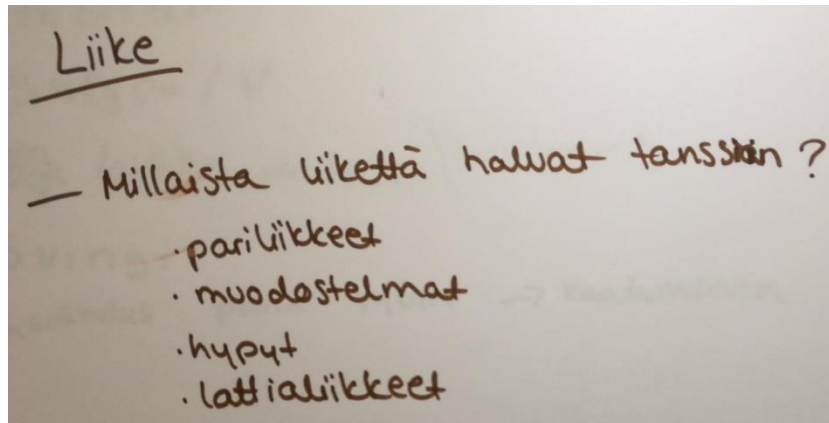 Liike
— Millaista liikettä haluat tanssiin?
· pariliikkeet
· muodostelmat
· hyput
· lattialiikkeet